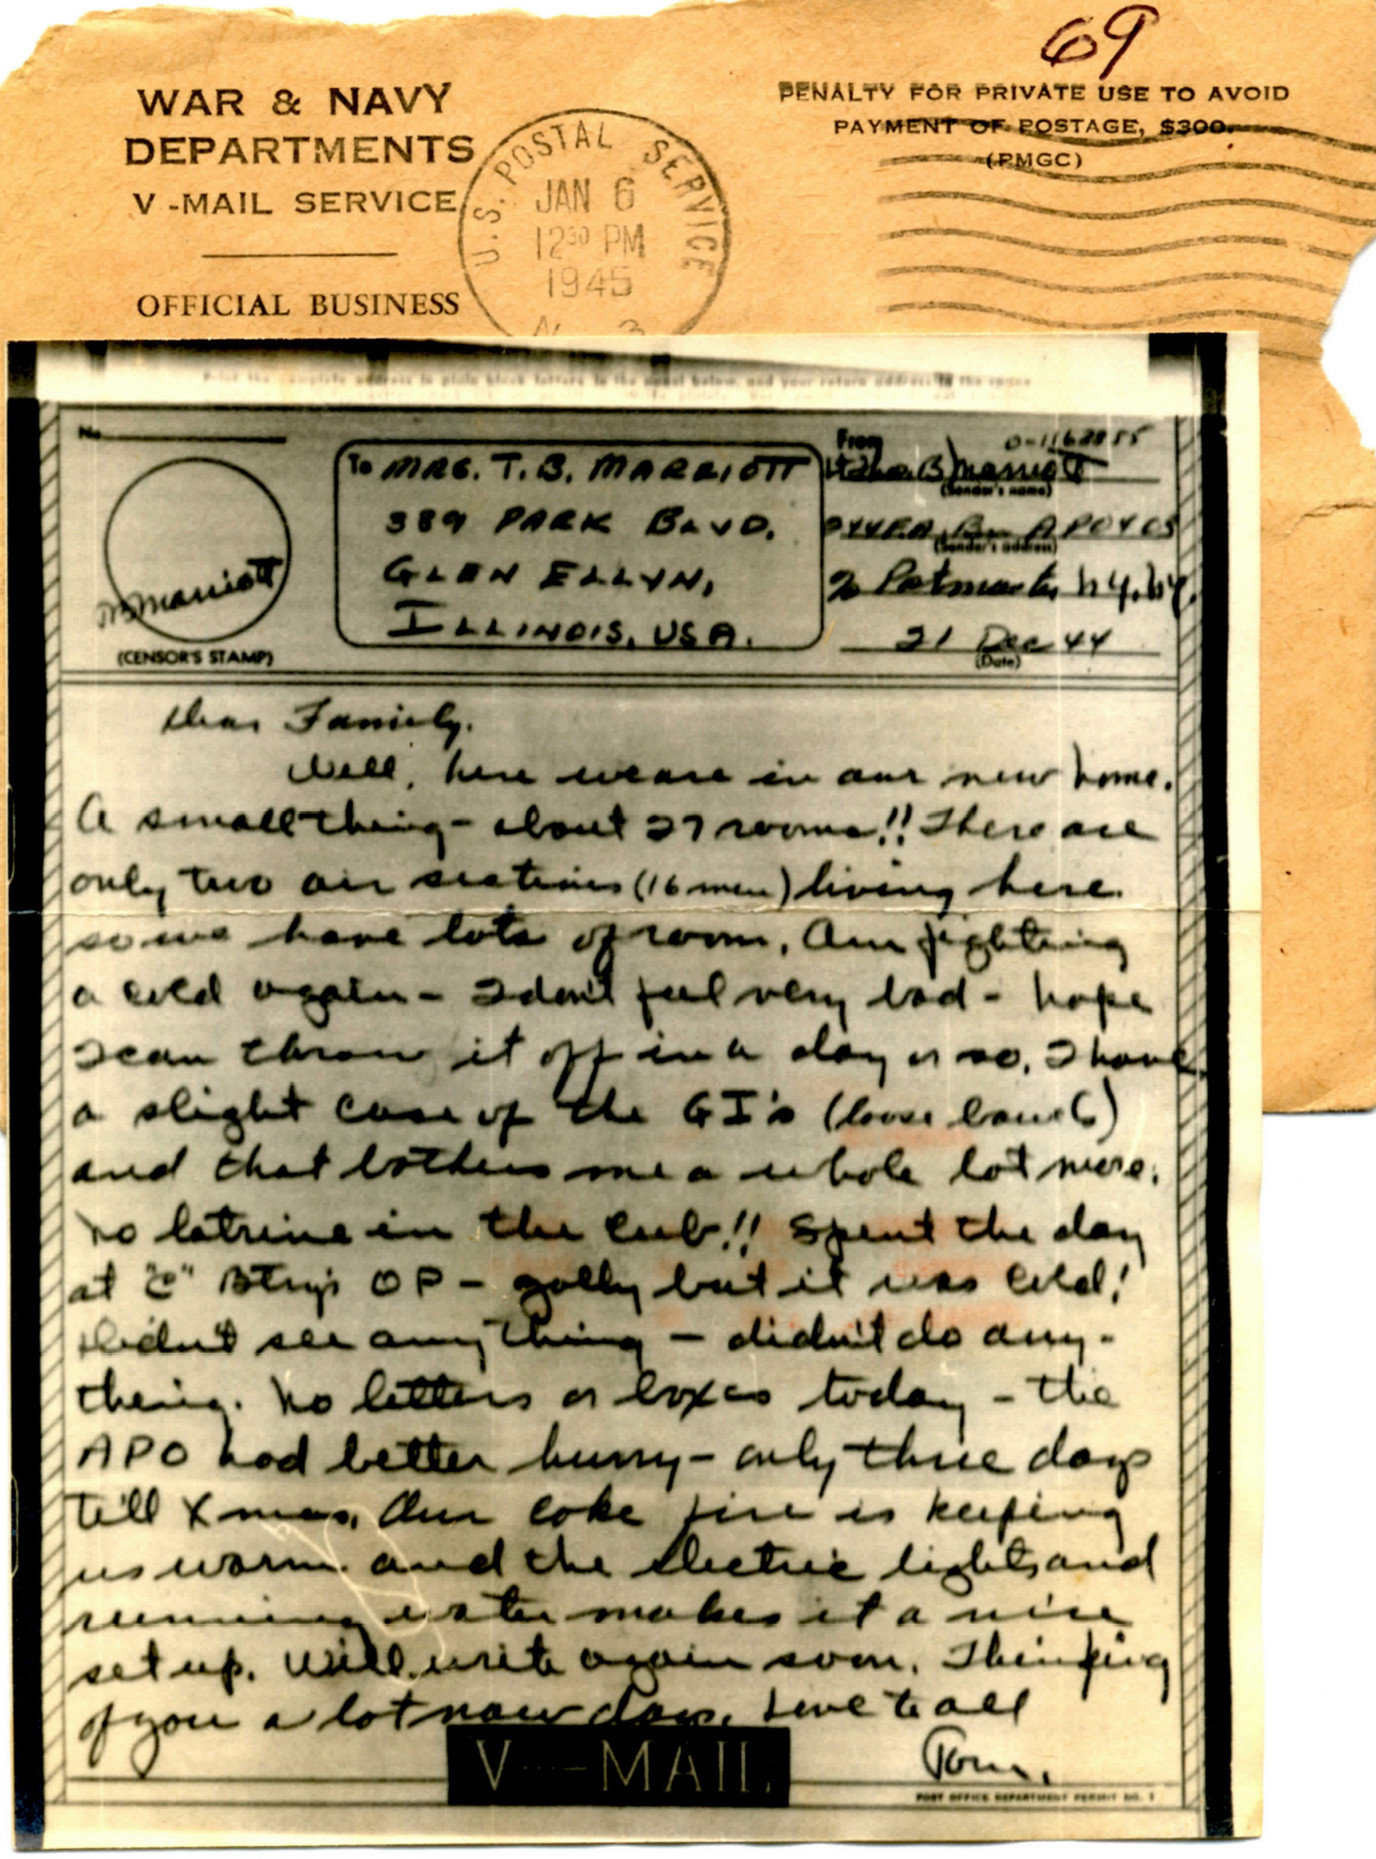 69
WAR & NAVY
DEPARTMENTS
V-MAIL SERVICE
OFFICIAL BUSINESS
U.S. POSTAL SERVICE
JAN 6
12 30 PM
1945
PENALTY FOR PRIVATE USE TO AVOID
PAYMENT OF POSTAGE, $300.
(PMGC)
Print the complete address in plain block letters in the panel below, and your return address in the space
No.
(CENSOR'S STAMP)
TB Marriott
To MRS. T. B. MARRIOTT
389 PARK BLVD.
GLEN ELLYN,
ILLINOIS, USA.
From
Lt Thos. B Marriott
(Sender's name)
F.A. Bn APO 403
(Sender's address)
% Postmaster N.Y., N.Y.
21 Dec 44
(Date)
Dear Family.
Well, here we are in our new home.
A small thing - about 27 rooms!! There are
only two air sections (16 men) living here.
so we have lots of room. Am fighting
a cold again - I don't feel very bad - hope
I can throw it off in a day or so. I have
a slight case of the GI's (loose bowels)
and that bothers me a whole lot more.
No latrine in the cub!! Spent the day
at "C" Btry's OP - golly but it was cold!
Didn't see anything - didn't do any-
thing. No letters or boxes today - the
APO had better hurry - only three days
till Xmas. Our coke fire is keeping
us warm and the electric lights and
running water makes it a nice
set up. Will write again soon. Thinking
of you a lot now days. Love to all
Tom.
V---MAIL
POST OFFICE DEPARTMENT PERMIT NO. 1